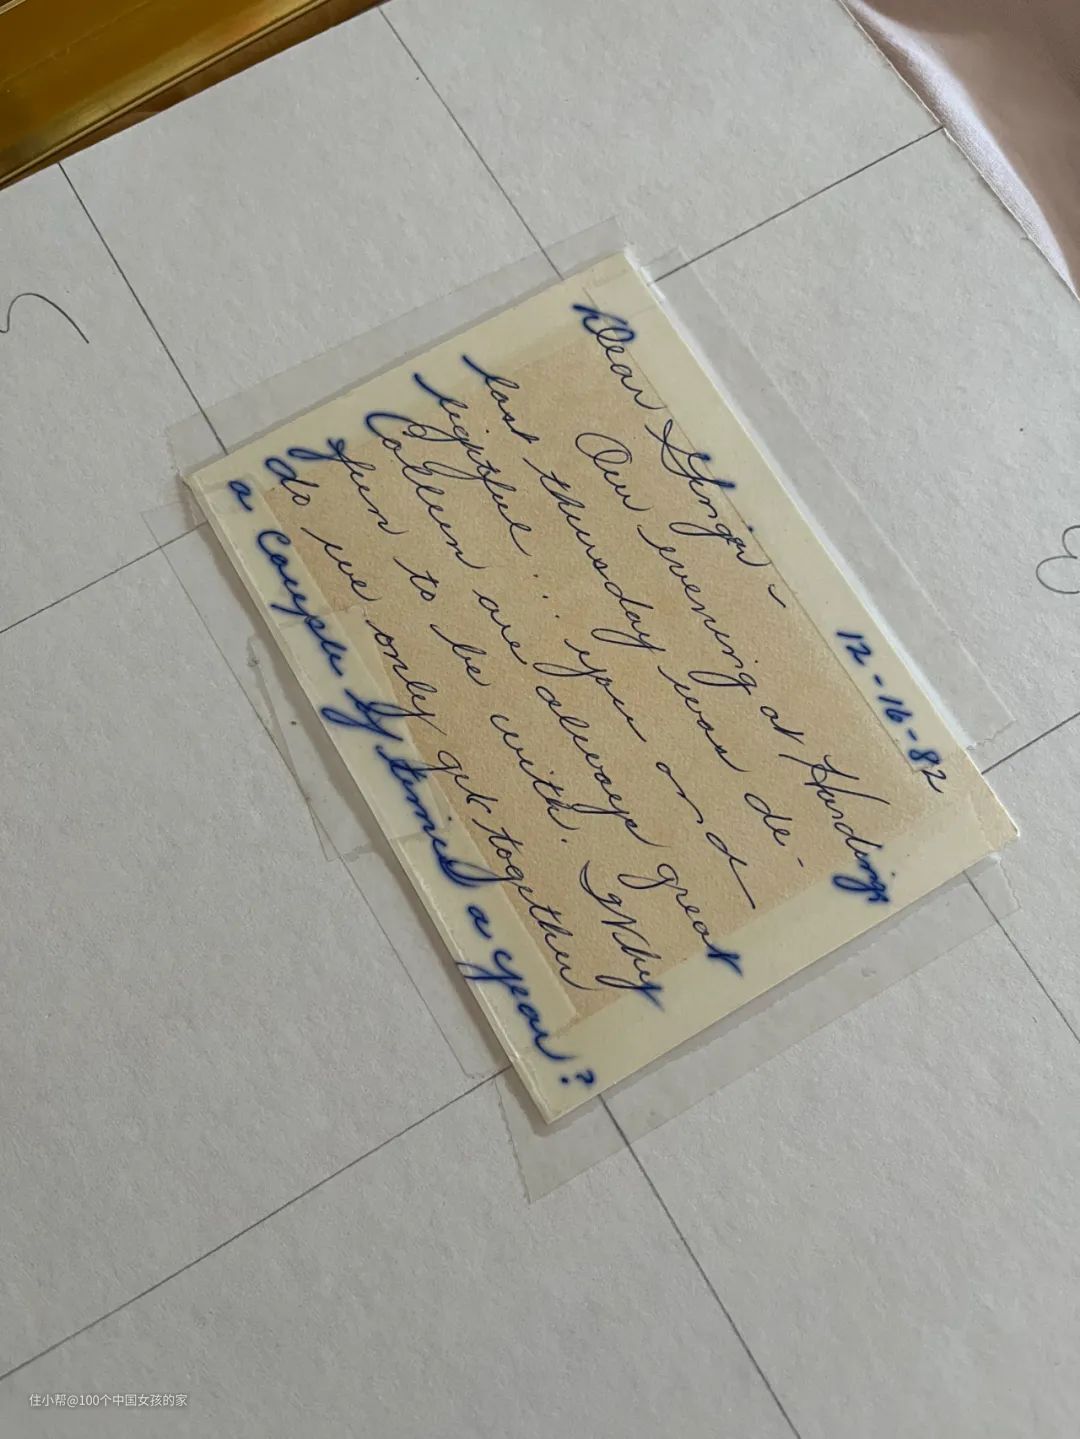 12-16-82
Dear Ginger -
Our evening at Hardings
last thursday was de-
lightful : : you and
Colleen are always great
fun to be with. Why
do we only get together
a couple of times a year?
住小帮@100个中国女孩的家